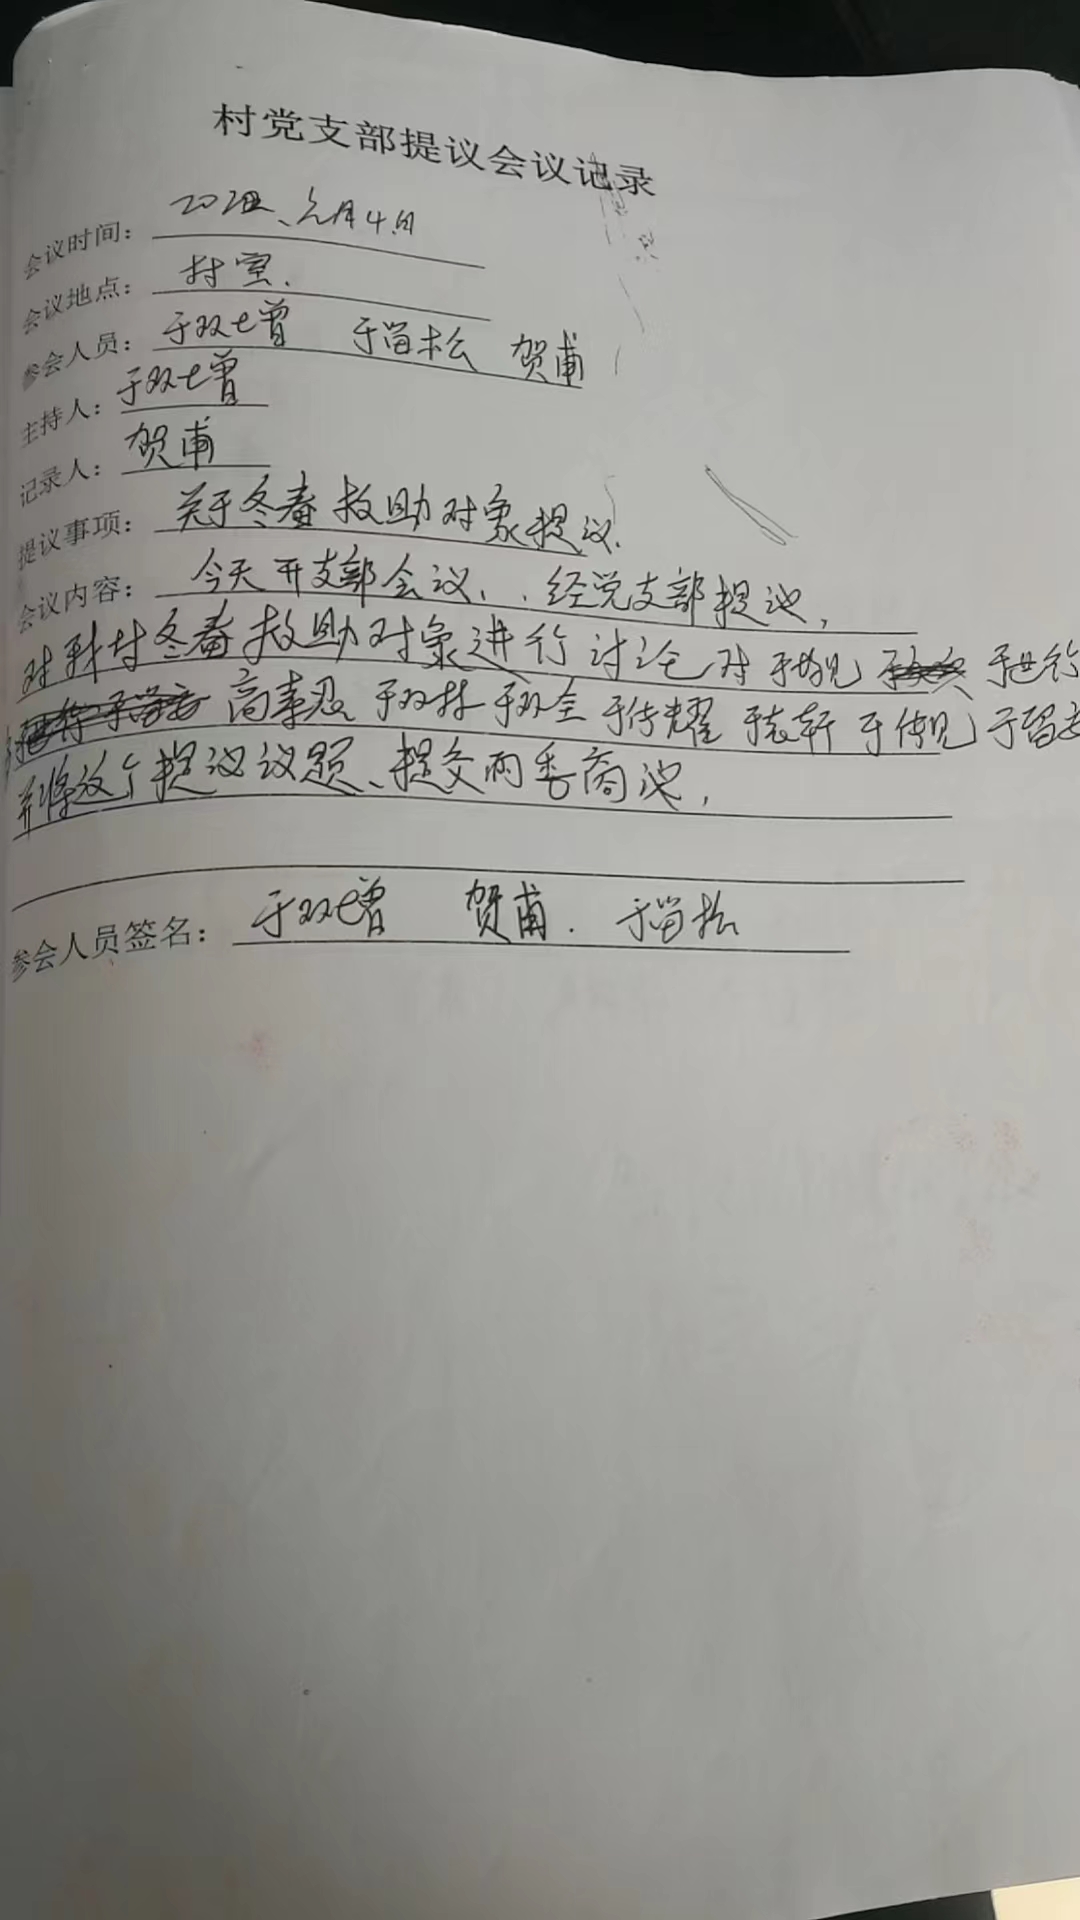 村党支部提议会议记录
会议时间: 元月4日
会议地点: 村室.
参会人员: 于双增 于留松 贺甫
主持人: 于双增
记录人: 贺甫
提议事项: 关于冬春救助对象提议.
会议内容: 今天开支部会议、经党支部提议,
对我村冬春救助对象进行讨论 对 于世行
高事忍 于双林 于双全 于传耀 于志轩 于传见 于留安
并将这个提议议题、提交两委商议,
参会人员签名: 于双增 贺甫. 于留松